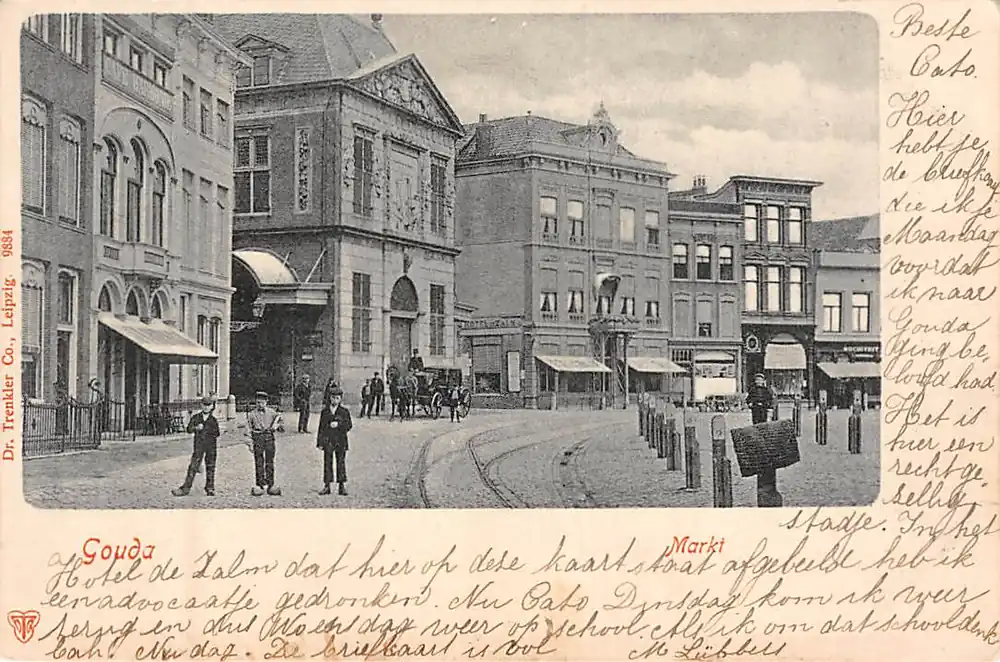 Dr. Trenkler Co., Leipzig 9884
HOTEL DE ZALM
Beste
Cato.
Hier
hebt je
de briefk
die ik je
Maandag
voordat
ik naar
Gouda
ging be-
loofd had
Het is
hier een
rechtge-
zellig
stadje. In het
Gouda
Markt
Hotel de Zalm dat hier op dese kaart staat afgebeeld heb ik
een advocaatje gedronken. Nu Cato Dinsdag kom ik weer
terug en dus Woensdag weer op school. Als ik om dat school denk
bah. Nu dag. De briefkaart is vol
M Lübbers